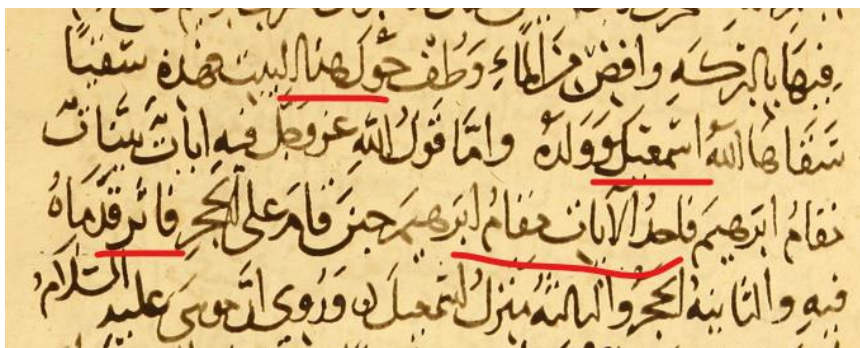 فيها بالبركه وافض من الماء وطف حول هذا البيت فهذه سقيا
سقاها الله اسمعيل وولده واما قول الله عز وجل فيه ايات بينات
مقام ابرهيم فاحد الآيات مقام ابرهيم حين قام على الحجر فاثر قدماه
فيه والثانيه الحجر والثالثه منزل اسمعيل وروى ان موسى عليه السلام